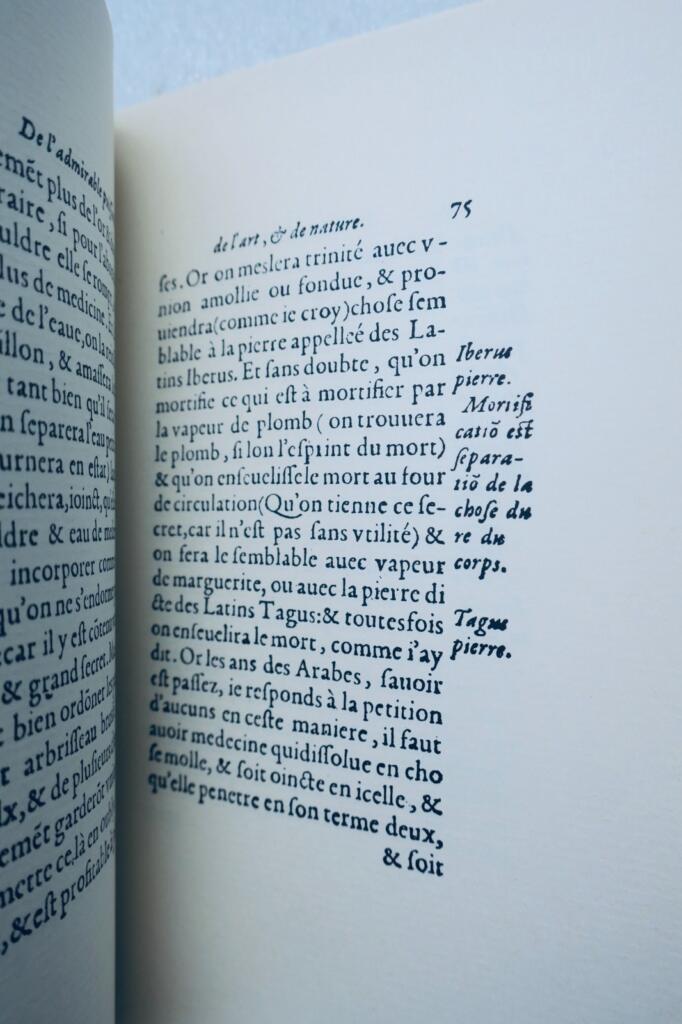 De l'admirable
emẽt plus de l'or
raire, ſi pour l'
uldre elle ſe rom
lus de medicine.
e de l'eaue, on la
illon, & amaſſera
tant bien qu'il
n ſeparera l'eau
urnera en eſtat)
eichera, ioinct, qu
ldre & eau de
incorporer com
qu'on ne s'endorme
car il y eſt cõtenu
& grand ſecret.
t bien ordõner
r arbriſſeau
lx, & de pluſieurs
emẽt garderõt
mette ce,là en
, & eſt profitable
de l'art, & de nature. 75
ſes. Or on meslera trinité auec v-
nion amollie ou fondue, & pro-
uiendra(comme ie croy)choſe ſem
blable à la pierre appelleé des La-
tins Iberus. Et ſans doubte, qu'on
mortifie ce qui eſt à mortifier par
la vapeur de plomb ( on trouuera
le plomb, ſi lon l'eſprint du mort)
& qu'on enſeueliſſe le mort au four
de circulation(Qu'on tienne ce ſe-
cret, car il n'eſt pas ſans vtilité) &
on fera le ſemblable auec vapeur
de marguerite, ou auec la pierre di
cte des Latins Tagus:& toutesfois
on enſeuelira le mort, comme i'ay
dit. Or les ans des Arabes, ſauoir
eſt paſſez, ie reſponds à la petition
d'aucuns en ceſte maniere, il faut
auoir medecine qui diſſolue en cho
ſe molle, & ſoit oincte en icelle, &
qu'elle penetre en ſon terme deux,
& ſoit
Iberus
pierre.
Mortifi
catiõ eſt
ſepara-
tiõ de la
choſe du
re du
corps.
Tagus
pierre.